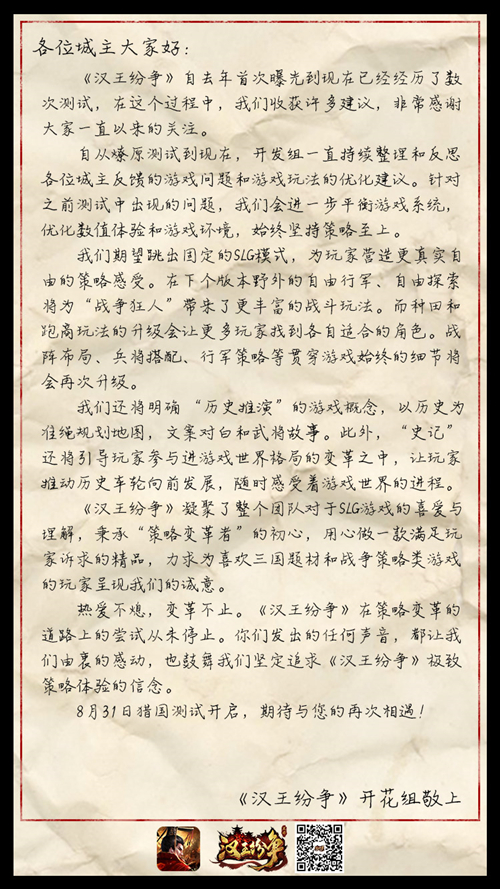 各位城主大家好：
《汉王纷争》自去年首次曝光到现在已经经历了数
次测试，在这个过程中，我们收获许多建议，非常感谢
大家一直以来的关注。
自从燎原测试到现在，开发组一直持续整理和反思
各位城主反馈的游戏问题和游戏玩法的优化建议。针对
之前测试中出现的问题，我们会进一步平衡游戏系统，
优化数值体验和游戏环境，始终坚持策略至上。
我们期望跳出固定的SLG模式，为玩家营造更真实自
由的策略感受。在下个版本野外的自由行军、自由探索
将为“战争狂人”带来了更丰富的战斗玩法。而种田和
跑商玩法的升级会让更多玩家找到各自适合的角色。战
阵布局、兵将搭配、行军策略等贯穿游戏始终的细节将
会再次升级。
我们还将明确“历史推演”的游戏概念，以历史为
准绳规划地图，文案对白和武将故事。此外，“史记”
还将引导玩家参与进游戏世界格局的变革之中，让玩家
推动历史车轮向前发展，随时感受着游戏世界的进程。
《汉王纷争》凝聚了整个团队对于SLG游戏的喜爱与
理解，秉承“策略变革者”的初心，用心做一款满足玩
家诉求的精品，力求为喜欢三国题材和战争策略类游戏
的玩家呈现我们的诚意。
热爱不熄，变革不止。《汉王纷争》在策略变革的
道路上的尝试从未停止。你们发出的任何声音，都让我
们由衷的感动，也鼓舞我们坚定追求《汉王纷争》极致
策略体验的信念。
8月31日猎国测试开启，期待与您的再次相遇！
《汉王纷争》开花组敬上
汉王纷争